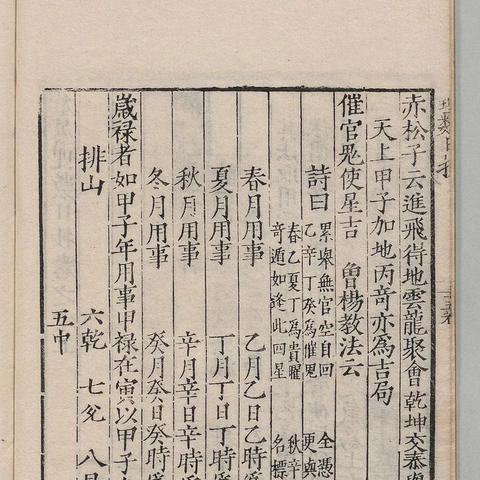 赤松子云進飛得地雲龍聚會乾坤交泰
天上甲子加地丙竒亦為吉局
催官鬼使星吉 曾楊教法云
詩曰 累舉無官空自回 全憑
乙辛丁癸為催鬼 更與
春乙夏丁為貴曜 秋辛
竒遁如逢此四星 名標
春月用事 乙月乙日乙時
夏月用事 丁月丁日丁時
秋月用事 辛月辛日辛時
冬月用事 癸月癸日癸時
歲禄者如甲子年用事甲禄在寅以甲子
排山 六乾 七兊 八
五中